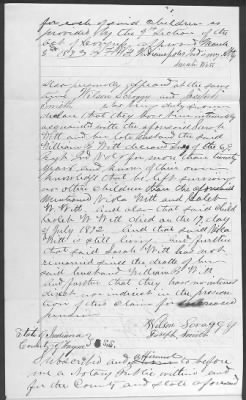 for each of said children as
provided by the 9th Section of the
act of Congress approved March
3d 1873
Sarah Witt
Also personally appeared at the same
time Wilson Scraggy and Joseph
Smith who being duly sworn
declare that they have been intimately
acquainted with the aforesaid Sarah
Witt and her late husband the said
William B Witt deceased of the
Regt Ind Vols for more than twenty
years and know of their own
knowledge that he left surviving
no other children than the aforesaid
mentioned Viola Witt and Caleb
W Witt. and also that said child
Caleb W Witt died on the 17 day
of July 1872. And that said Viola
Witt is still living and further
that said Sarah Witt has not
remarried since the death of her
said husband William B Witt
and further that they have no interest
direct nor indirect in the prosecution
of this Claim for increased
pension
Wilson Scraggy
Joseph Smith
State of Indiana
County of Wayne } SS.
Subscribed and affirmed to before
me a Notary Public within and
for the County and state aforesaid